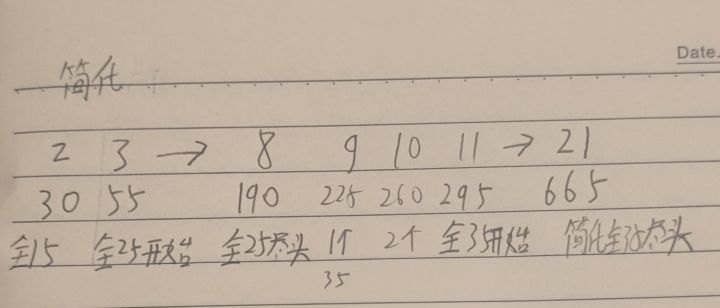 Date.
简化
2 3 → 8 9 10 11 → 21
30 55 190 225 260 295 665
全15 全25开始 全25尽头 1个 2个 全35开始 简化全35尽头
35